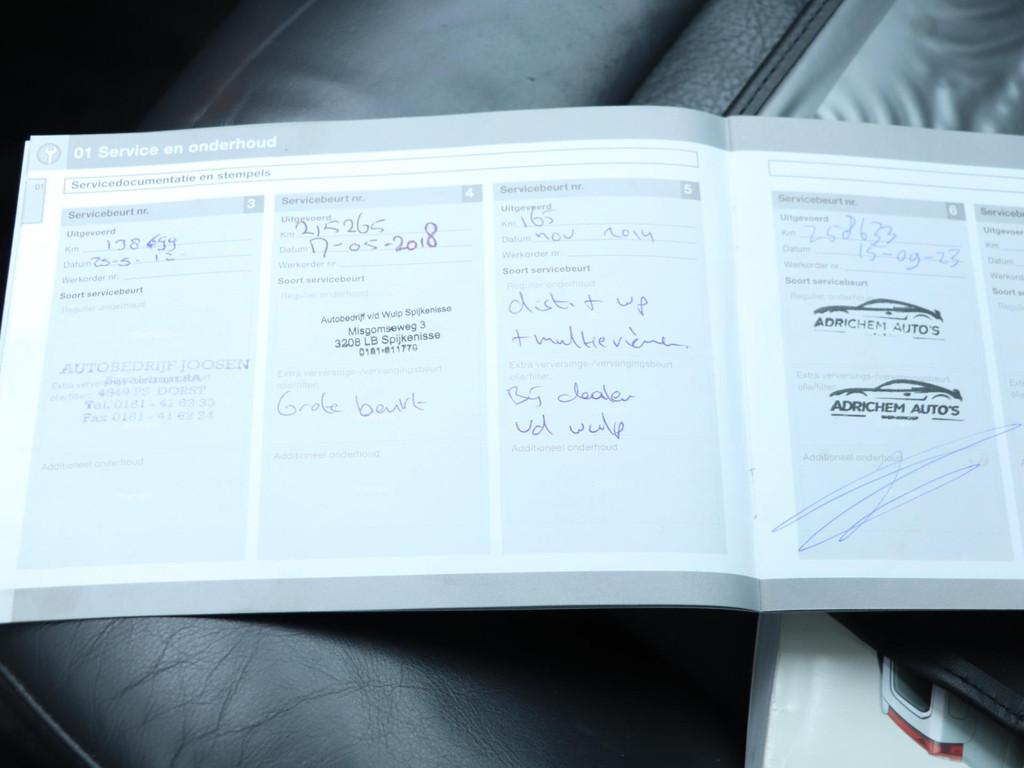 01 Service en onderhoud
01
Servicedocumentatie en stempels
Servicebeurt nr. 3
Uitgevoerd
Km 138 699
Datum 25-5-12-
Werkorder nr.
Soort servicebeurt
Regulier onderhoud
AUTOBEDRIJF JOOSEN
Extra verversings-/vervangingsbeurt
olie/filter:
4849 PS DORST
Tel. 0161 - 41 62 33
Fax 0161 - 41 62 34
Additioneel onderhoud
Servicebeurt nr. 4
Uitgevoerd
Km 215265
Datum 17-05-2018
Werkorder nr.
Soort servicebeurt
Regulier onderhoud
Autobedrijf v/d Wulp Spijkenisse
Misgomseweg 3
3208 LB Spijkenisse
0181-611770
Extra verversings-/vervangingsbeurt
olie/filter:
Grote beurt
Additioneel onderhoud
Servicebeurt nr. 5
Uitgevoerd
Km 165
Datum nov 2014
Werkorder nr.
Soort servicebeurt
Regulier onderhoud
distr. + wp
+ multieriemen.
Extra verversings-/vervangingsbeurt
olie/filter:
Bij dealer
vd wulp
Additioneel onderhoud
Servicebeurt nr. 6
Uitgevoerd
Km 258633
Datum 15-09-23
Werkorder nr.
Soort servicebeurt
Regulier onderhoud
ADRICHEM AUTO'S
Extra verversings-/vervangingsbeurt
olie/filter:
ADRICHEM AUTO'S
Additioneel onderhoud
Servicebe
Uitgevoer
Km
Datum
Werkorder
Soort se
Regulier
Extra
olie/f